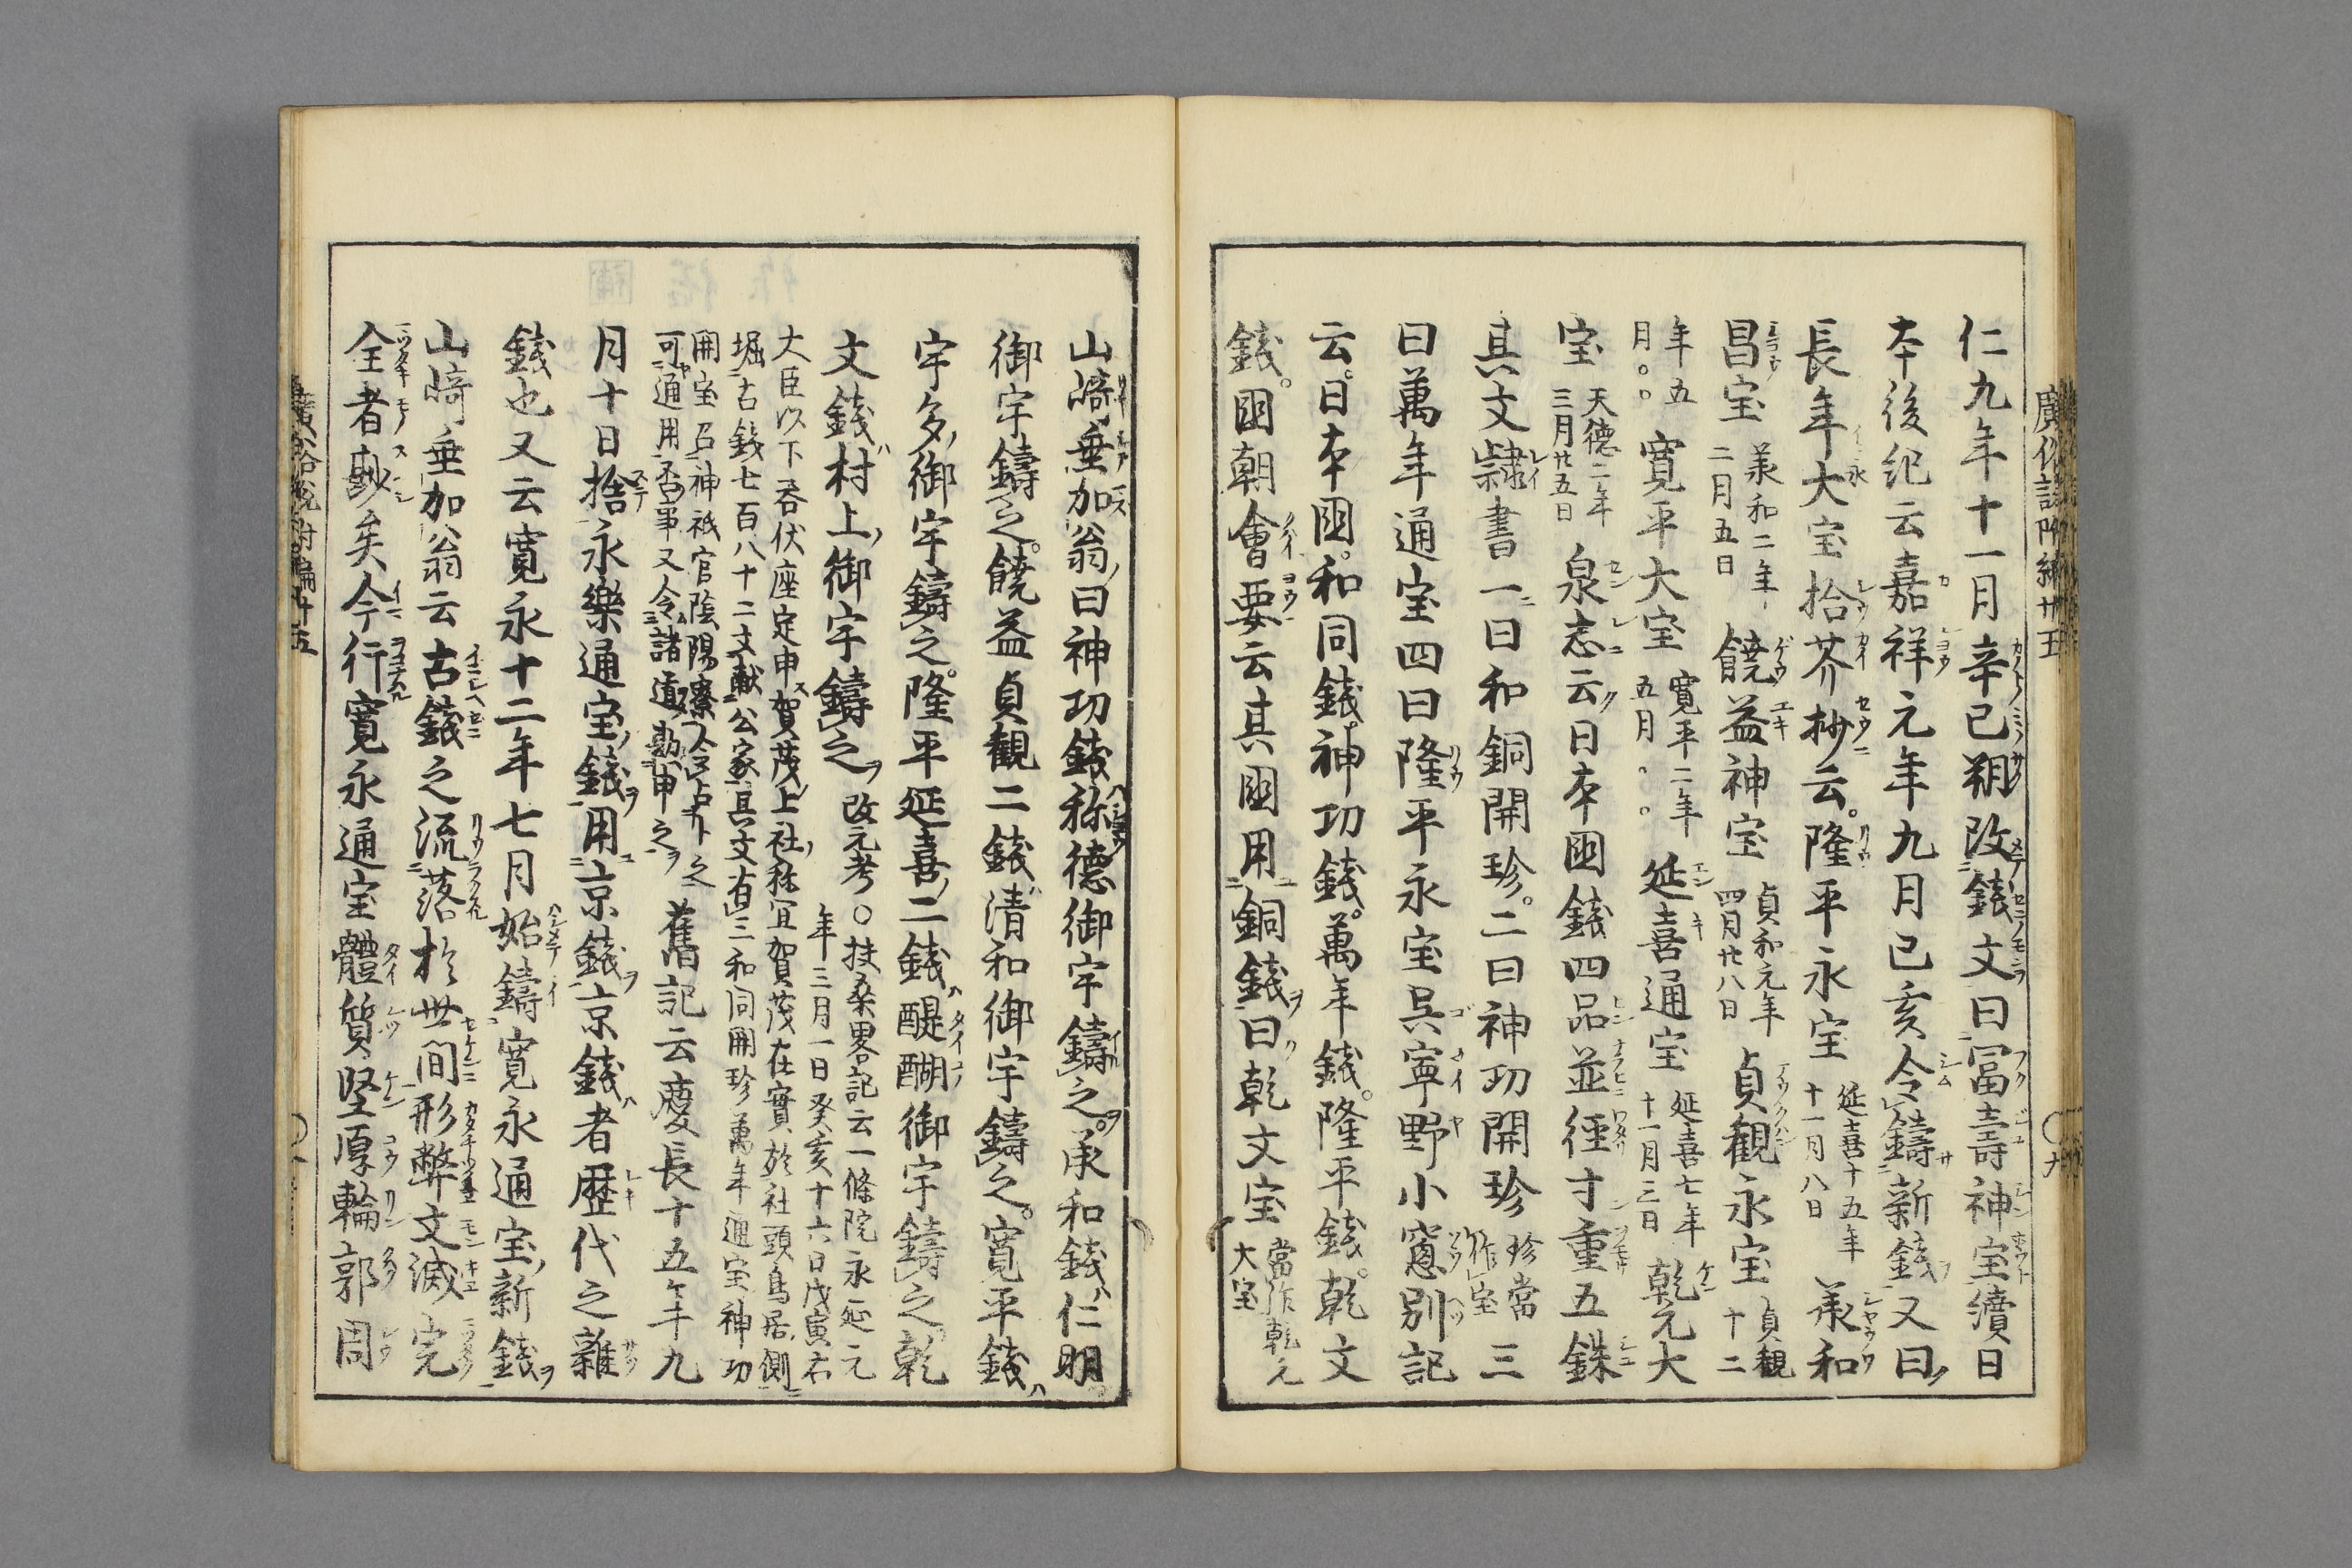 仁九年十一月辛已朔改錢文曰冨壽神宝續日
本後紀云嘉祥元年九月已亥令鑄新錢又曰
長年大宝拾芥抄云隆平永宝
延喜十五年
十一月八日
羕和
昌宝
羕和二年
二月五日
饒益神宝
貞和元年
四月廿八日
貞観永宝
貞観
十二
年五
月
寛平大宝
寛平二年
五月
延喜通宝
延喜七年
十一月三日
乾元大
宝
天徳二年
三月廿五日
泉志云日本國錢四品並徑寸重五銖
其文隷書一曰和銅開珍二曰神功開珍
珍當
作宝
三
曰萬年通宝四曰隆平永宝呉寧野小窻別記
云日本國和同錢神功錢萬年錢隆平錢乾文
錢國朝會要云其國用銅錢曰乾文宝
當作乾元
大宝
山﨑垂加翁曰神功錢称德御宇鑄之承和錢仁明
御宇鑄之饒益貞観二錢清和御宇鑄之寛平錢
宇多御宇鑄之隆平延喜二錢醍醐御宇鑄之乾
文錢村上御宇鑄之
改元考○扶桑畧記云一條院永延元
年三月一日癸亥十六日戊寅右
大臣以下着伏座定申賀茂上社祢宜賀茂在實於社頭鳥居側
堀古錢七百八十二文献公家其文有三和同開珍萬年通宝神功
開宝召神祇官陰陽寮令占卜之
可通用否事又令諸道勘申之
舊記云慶長十五年九
月十日捨永樂通宝錢用京錢京錢者歴代之雜
錢也又云寛永十二年七月始鑄寛永通宝新錢
山﨑垂加翁云古錢之流落於世間形弊文滅完
全者尠矣今行寛永通宝體質堅厚輪郭周